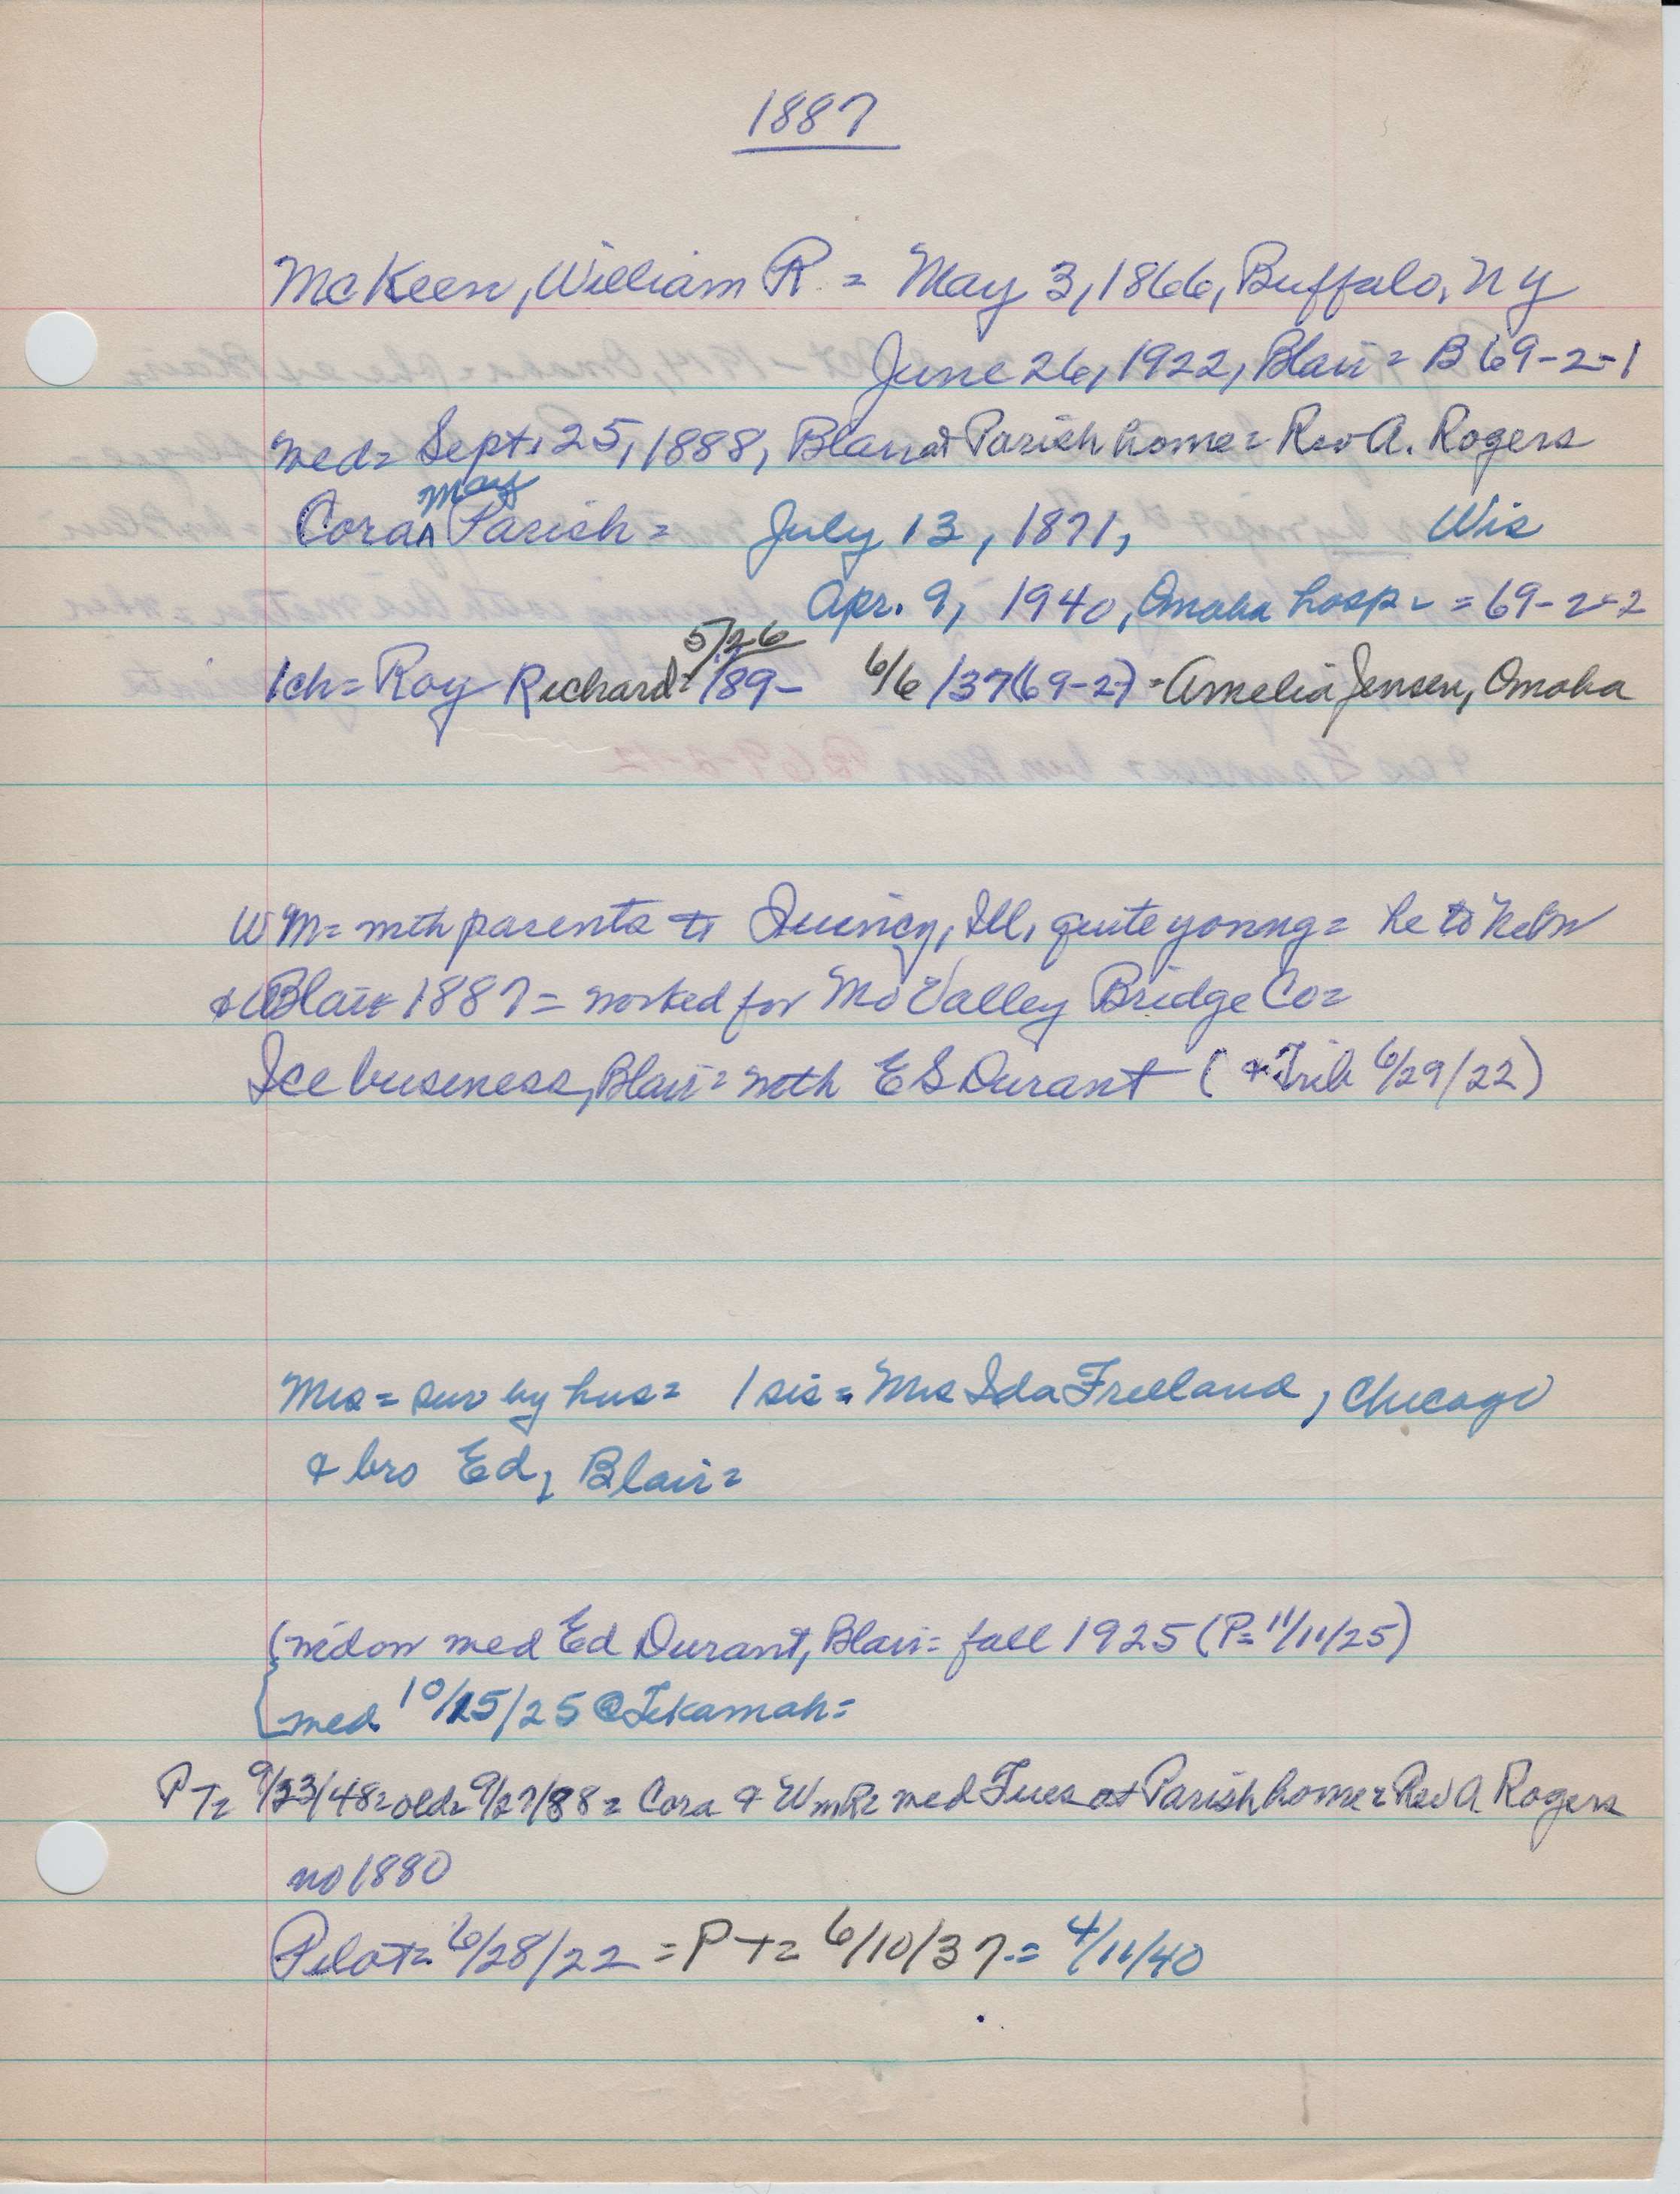 1887
McKeen, William R. = May 3, 1866, Buffalo, N Y
June 26, 1922, Blair = B 69-2-1
med = Sept. 25, 1888, Blair at Parish home = Rev A. Rogers
May
Cora ^ Parish = July 13, 1871, Wis
Apr. 9, 1940, Omaha hosp = 69-2-2
5/26
1ch = Roy Richard = /89 - 6/6/37 (69-2-) = Amelia Jensen, Omaha
Wm = with parents to Quincy, Ill, quite young = he to Neb
& Blair 1887 = worked for Mo Valley Bridge Co =
Ice business, Blair = with E S Durant ( & Trib 6/29/22)
Mrs = sur by hus = 1 sis = Mrs Ida Freeland, Chicago
& bro Ed, Blair =
(widow med Ed Durant, Blair = fall 1925 (P = 11/11/25)
med 10/15/25 @ Tekamah =
P T = 9/23/48 = old = 9/27/88 = Cora & Wm R = med Tues at Parish home = Rev A Rogers
no 1880
Pilot = 6/28/22 = P T = 6/10/37 = 4/11/40